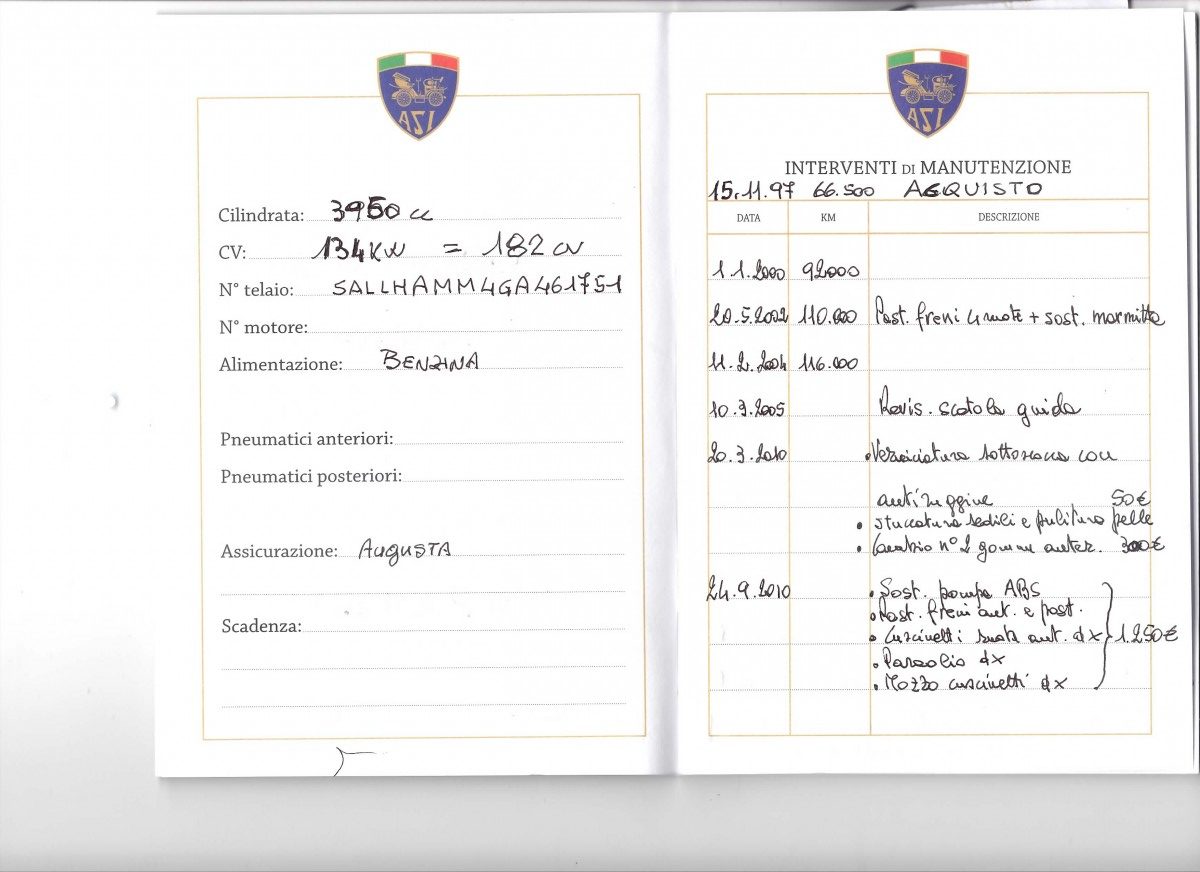 ASI
Cilindrata: 3950 cc
CV: 134KW = 182 CV
N° telaio: SALLHAMM4GA461751
N° motore:
Alimentazione: BENZINA
Pneumatici anteriori:
Pneumatici posteriori:
Assicurazione: AUGUSTA
Scadenza:
ASI
INTERVENTI DI MANUTENZIONE
15.11.97 66.500 ACQUISTO
DATA KM DESCRIZIONE
1.1.2000 92000
20.5.2002 110.000 Past. freni 4 ruote + sost. marmitta
11.2.2004 116.000
10.3.2005 Revis. scatola guida
20.3.2010 • Verniciatura sottoscocca con
antiruggine 50€
• stuccatura sedili e pulitura pelle
• Cambio n° 2 gomme anter. 300€
24.9.2010 • Sost. pompa ABS
• Past. freni ant. e post.
• Cuscinetti ruota ant. dx 1.250€
• Paraolio dx
• Mozzo cuscinetti dx